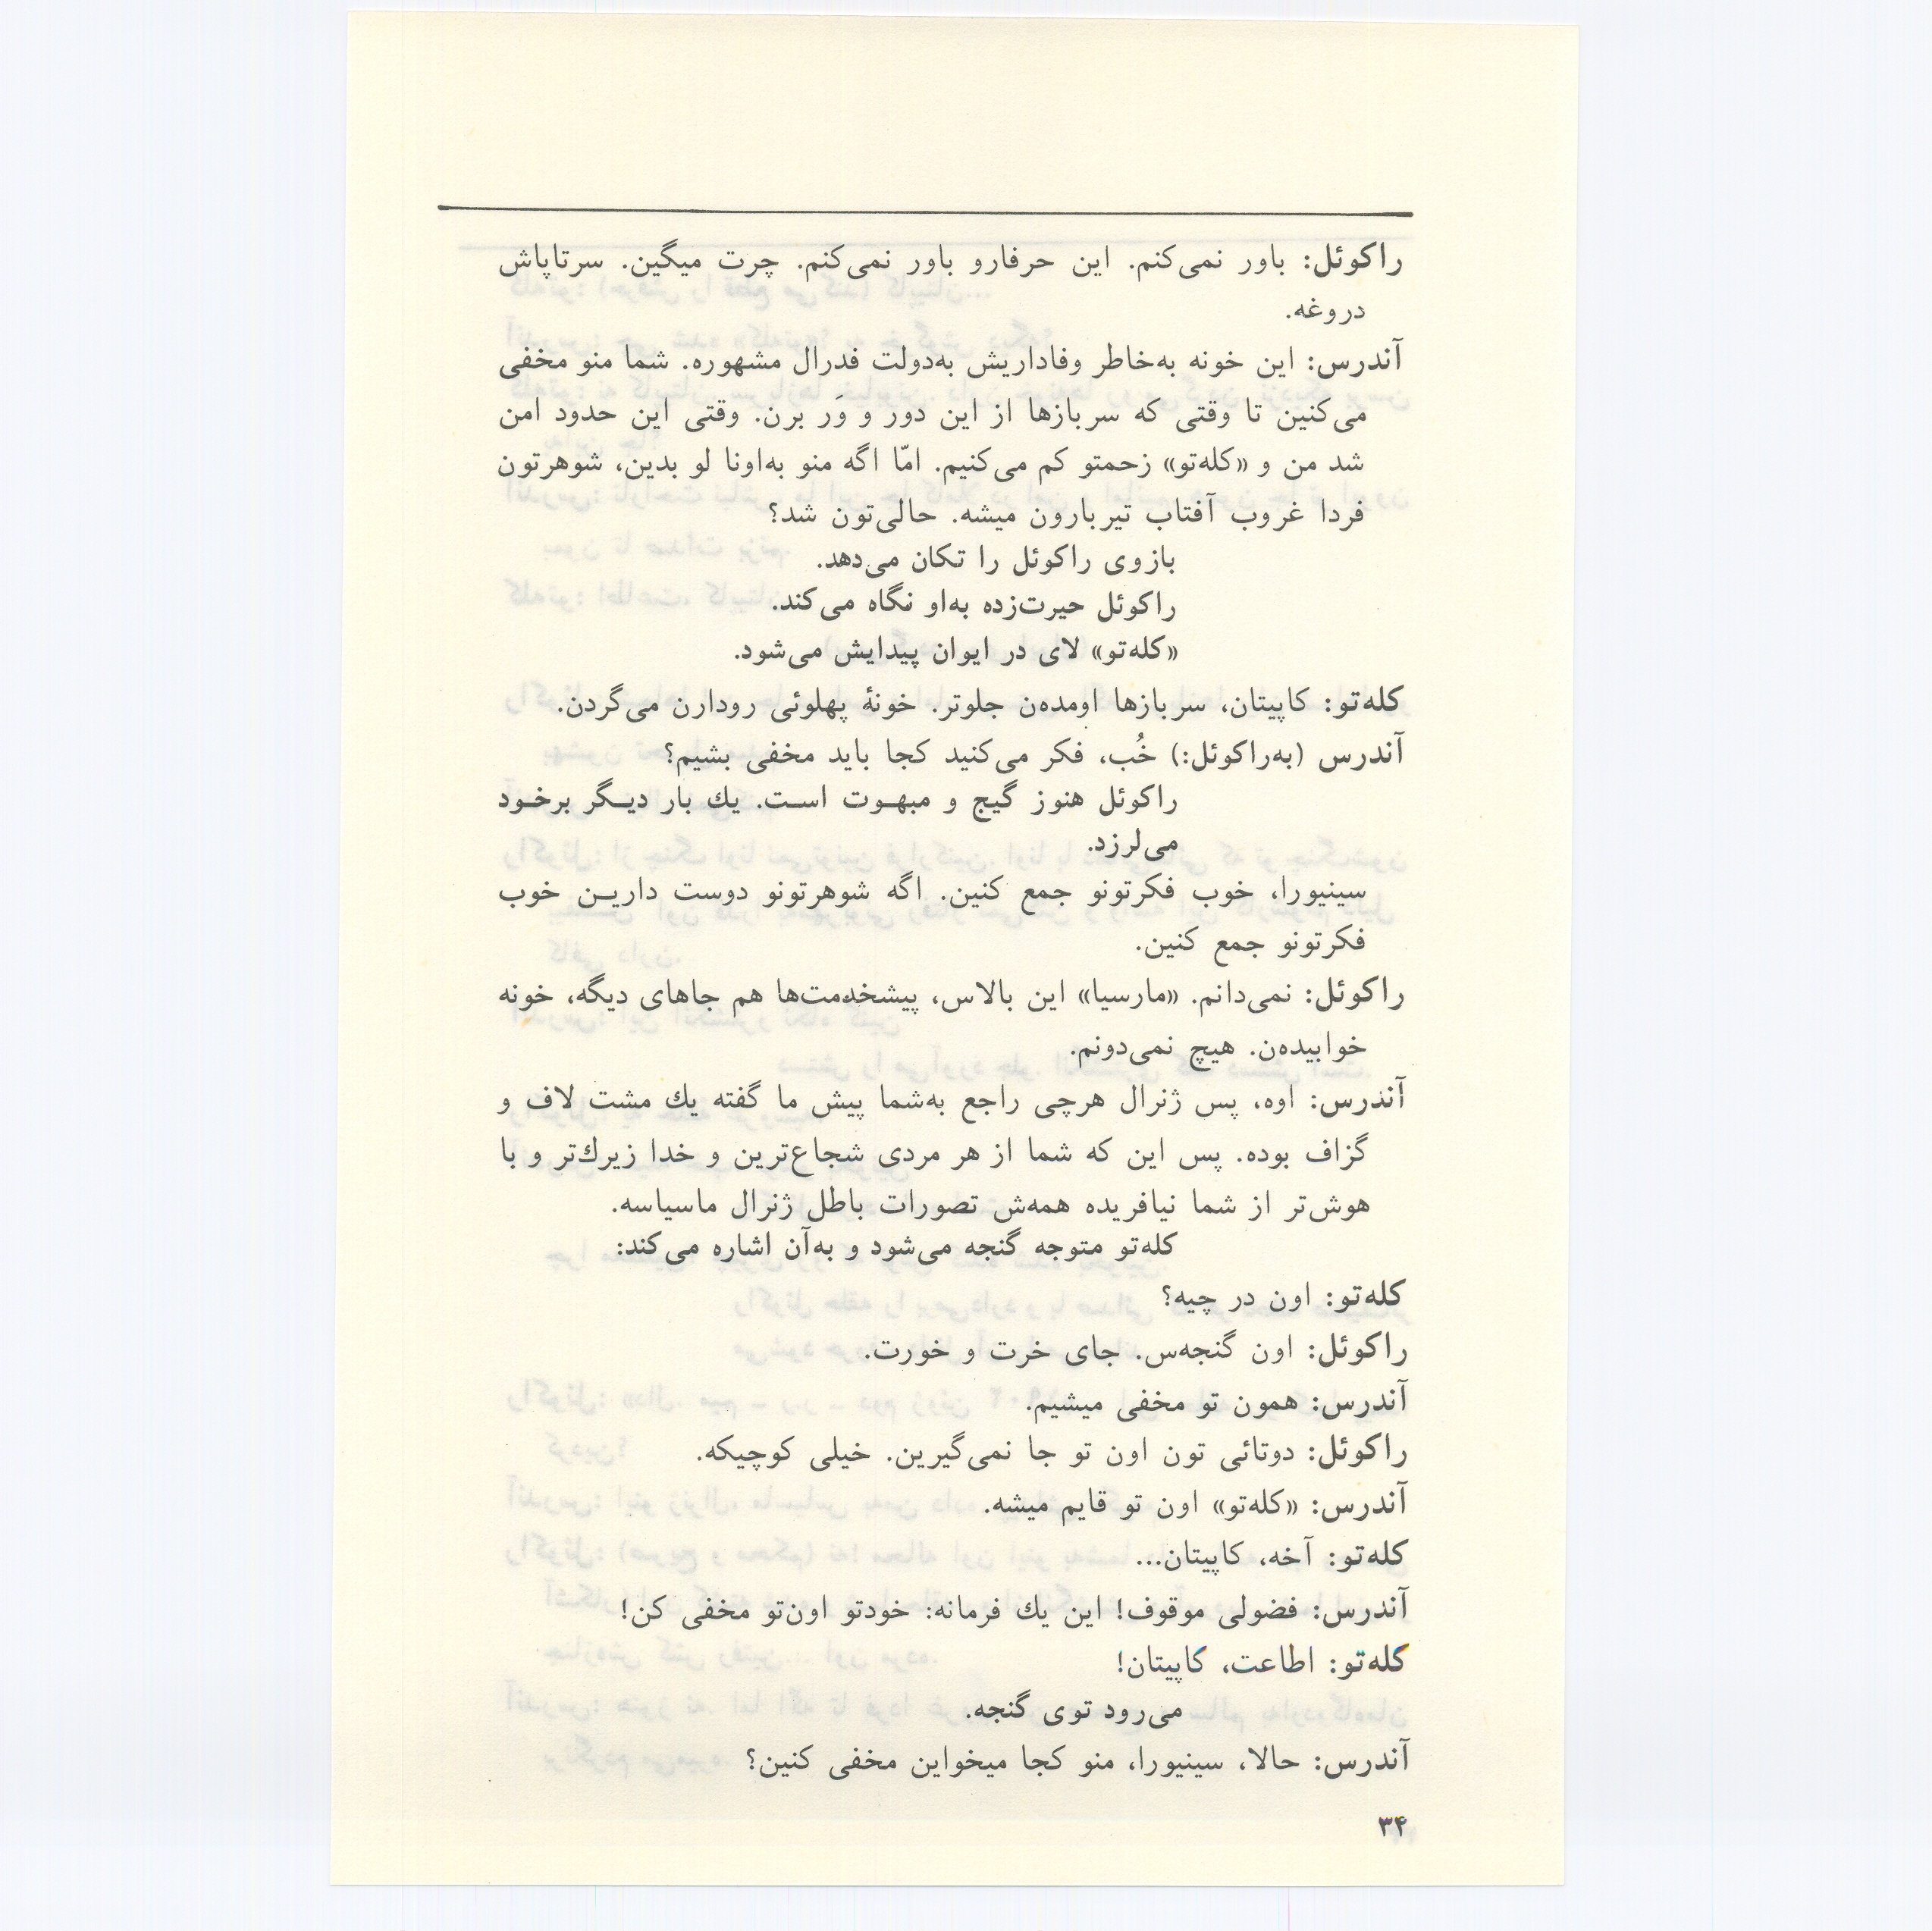 راکوئل: باور نمی‌کنم. این حرفارو باور نمی‌کنم. چرت میگین. سرتاپاش
دروغه.
آندرس: این خونه به‌خاطر وفاداریش به‌دولت فدرال مشهوره. شما منو مخفی
می‌کنین تا وقتی که سربازها از این دور و وَر برن. وقتی این حدود امن
شد من و «کله‌تو» زحمتو کم می‌کنیم. امّا اگه منو به‌اونا لو بدین، شوهرتون
فردا غروب آفتاب تیربارون میشه. حالی‌تون شد؟
بازوی راکوئل را تکان می‌دهد.
راکوئل حیرت‌زده به‌او نگاه می‌کند.
«کله‌تو» لای در ایوان پیدایش می‌شود.
کله‌تو: کاپیتان، سربازها اومده‌ن جلوتر. خونهٔ پهلوئی رودارن می‌گردن.
آندرس (به‌راکوئل:) خُب، فکر می‌کنید کجا باید مخفی بشیم؟
راکوئل هنوز گیج و مبهـوت اسـت. یك بار دیـگر برخـود
می‌لرزد.
سینیورا، خوب فکرتونو جمع کنین. اگه شوهرتونو دوست داریـن خوب
فکرتونو جمع کنین.
راکوئل: نمی‌دانم. «مارسیا» این بالاس، پیشخدمت‌ها هم جاهای دیگه، خونه
خوابیده‌ن. هیچ نمی‌دونم.
آندرس: اوه، پس ژنرال هرچی راجع به‌شما پیش ما گفته یك مشت لاف و
گزاف بوده. پس این که شما از هر مردی شجاع‌ترین و خدا زیرك‌تر و با
هوش‌تر از شما نیافریده همه‌ش تصورات باطل ژنرال ماسیاسه.
کله‌تو متوجه گنجه می‌شود و به‌آن اشاره می‌کند:
کله‌تو: اون در چیه؟
راکوئل: اون گنجه‌س. جای خرت و خورت.
آندرس: همون تو مخفی میشیم.
راکوئل: دوتائی تون اون تو جا نمی‌گیرین. خیلی کوچیکه.
آندرس: «کله‌تو» اون تو قایم میشه.
کله‌تو: آخه، کاپیتان...
آندرس: فضولی موقوف! این یك فرمانه: خودتو اون‌تو مخفی کن!
کله‌تو: اطاعت، کاپیتان!
می‌رود توی گنجه.
آندرس: حالا، سینیورا، منو کجا میخواین مخفی کنین؟
۳۴